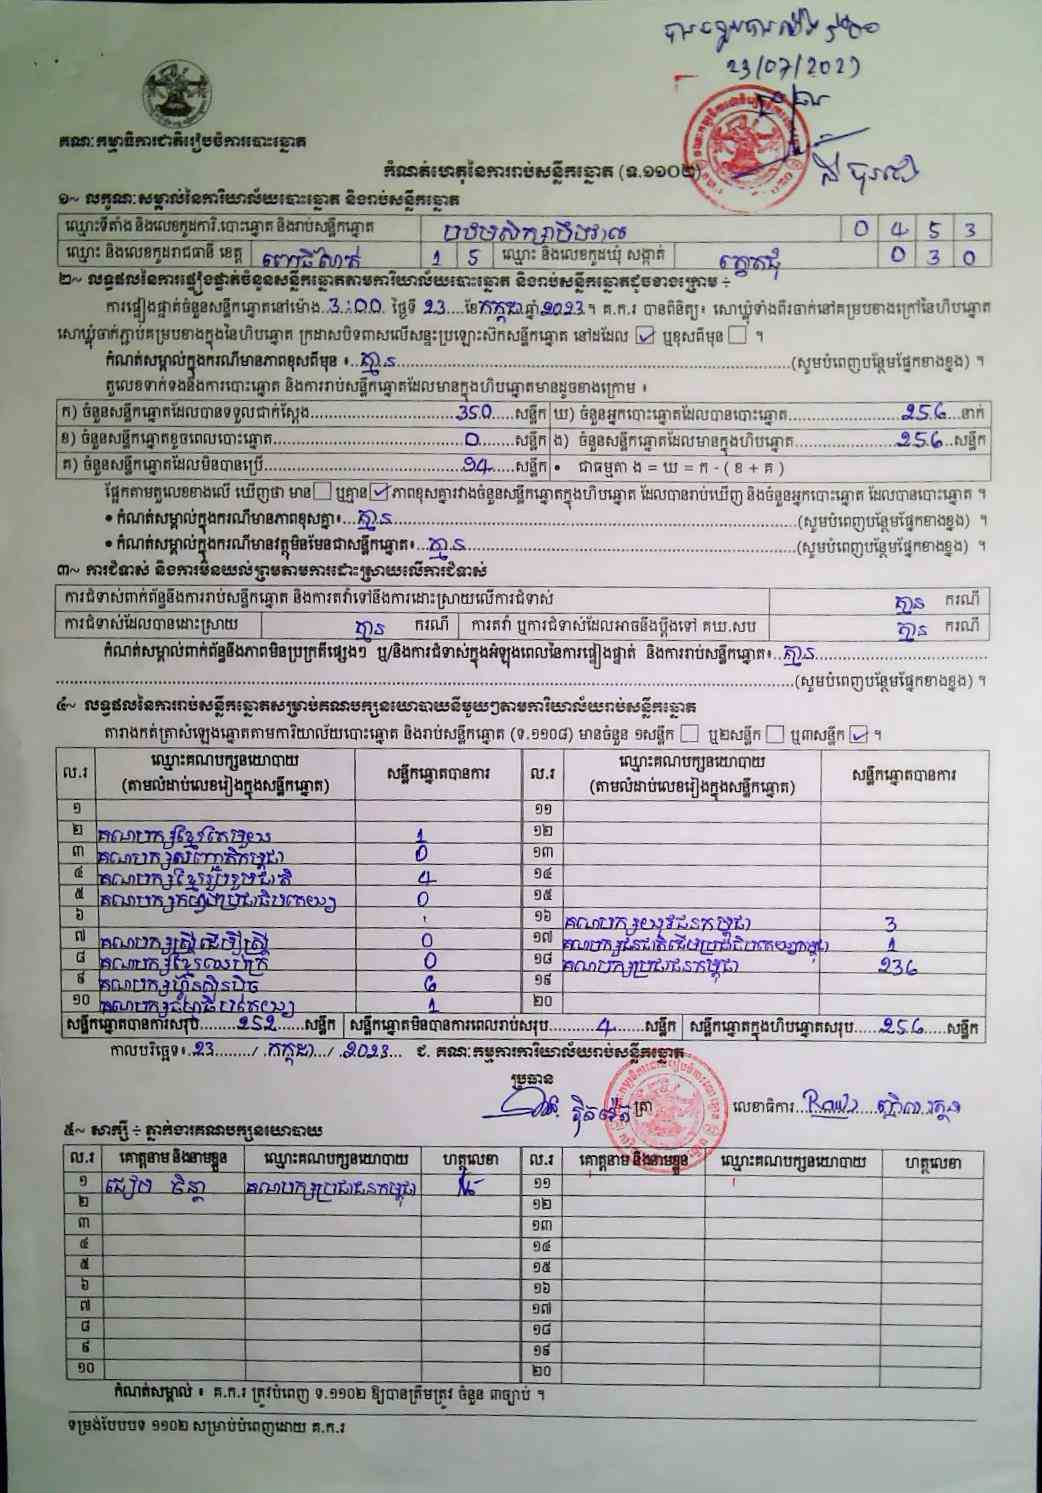 23/07/2023
គណៈកម្មាធិការជាតិរៀបចំការបោះឆ្នោត
កំណត់ហេតុនៃការរាប់សន្លឹកឆ្នោត (ទ.១១០២)
១~ លក្ខណៈសម្គាល់នៃការិយាល័យបោះឆ្នោត និងរាប់សន្លឹកឆ្នោត
ឈ្មោះទីតាំង និងលេខកូដការិ.បោះឆ្នោត និងរាប់សន្លឹកឆ្នោត 0 4 5 3
ឈ្មោះ និងលេខកូដរាជធានី ខេត្ត ពោធិ៍សាត់ 1 5 ឈ្មោះ និងលេខកូដឃុំ សង្កាត់ 0 3 0
២~ លទ្ធផលនៃការផ្ទៀងផ្ទាត់ចំនួនសន្លឹកឆ្នោតតាមការិយាល័យបោះឆ្នោត និងរាប់សន្លឹកឆ្នោតដូចខាងក្រោម ÷
ការផ្ទៀងផ្ទាត់ចំនួនសន្លឹកឆ្នោតនៅម៉ោង..3:00. ថ្ងៃទី 23....ខែកក្កដាឆ្នាំ.2023.. គ.ក.រ បានពិនិត្យ៖ សោឃ្លុំទាំងពីរចាក់នៅគម្របខាងក្រៅនៃហិបឆ្នោត
សោឃ្លុំចាក់ភ្ជាប់គម្របខាងក្នុងនៃហិបឆ្នោត ក្រដាសបិទពាសលើសន្ទះប្រឡោះស៊កសន្លឹកឆ្នោត នៅដដែល ☑ ឬខុសពីមុន ☐ ។
កំណត់សម្គាល់ក្នុងករណីមានភាពខុសពីមុន ៖..គ្មាន....(សូមបំពេញបន្ថែមផ្នែកខាងខ្នង) ។
តួលេខទាក់ទងនឹងការបោះឆ្នោត និងការរាប់សន្លឹកឆ្នោតដែលមានក្នុងហិបឆ្នោតមានដូចខាងក្រោម ៖
ក) ចំនួនសន្លឹកឆ្នោតដែលបានទទួលជាក់ស្តែង....350....សន្លឹក ឃ) ចំនួនអ្នកបោះឆ្នោតដែលបានបោះឆ្នោត....256...នាក់
ខ) ចំនួនសន្លឹកឆ្នោតខូចពេលបោះឆ្នោត....0....សន្លឹក ង) ចំនួនសន្លឹកឆ្នោតដែលមានក្នុងហិបឆ្នោត....256..សន្លឹក
គ) ចំនួនសន្លឹកឆ្នោតដែលមិនបានប្រើ....94....សន្លឹក • ជាធម្មតា ង = ឃ = ក - ( ខ + គ )
ផ្អែកតាមតួលេខខាងលើ ឃើញថា មាន ☐ ឬគ្មាន ☑ ភាពខុសគ្នារវាងចំនួនសន្លឹកឆ្នោតក្នុងហិបឆ្នោត ដែលបានរាប់ឃើញ និងចំនួនអ្នកបោះឆ្នោត ដែលបានបោះឆ្នោត ។
• កំណត់សម្គាល់ក្នុងករណីមានភាពខុសគ្នា៖...គ្មាន....(សូមបំពេញបន្ថែមផ្នែកខាងខ្នង) ។
• កំណត់សម្គាល់ក្នុងករណីមានវត្ថុមិនមែនជាសន្លឹកឆ្នោត៖..គ្មាន....(សូមបំពេញបន្ថែមផ្នែកខាងខ្នង) ។
៣~ ការជំទាស់ និងការមិនយល់ព្រមតាមការដោះស្រាយលើការជំទាស់
ការជំទាស់ពាក់ព័ន្ធនឹងការរាប់សន្លឹកឆ្នោត និងការតវ៉ាទៅនឹងការដោះស្រាយលើការជំទាស់ គ្មាន ករណី
ការជំទាស់ដែលបានដោះស្រាយ គ្មាន ករណី ការតវ៉ា ឬការជំទាស់ដែលអាចនឹងប្តឹងទៅ គឃ.សប គ្មាន ករណី
កំណត់សម្គាល់ពាក់ព័ន្ធនឹងភាពមិនប្រក្រតីផ្សេងៗ ឬ/និងការជំទាស់ក្នុងអំឡុងពេលនៃការផ្ទៀងផ្ទាត់ និងការរាប់សន្លឹកឆ្នោត៖..គ្មាន....
....(សូមបំពេញបន្ថែមផ្នែកខាងខ្នង) ។
៤~ លទ្ធផលនៃការរាប់សន្លឹកឆ្នោតសម្រាប់គណបក្សនយោបាយនីមួយៗតាមការិយាល័យរាប់សន្លឹកឆ្នោត
តារាងកត់ត្រាសំឡេងឆ្នោតតាមការិយាល័យបោះឆ្នោត និងរាប់សន្លឹកឆ្នោត (ទ.១១០៨) មានចំនួន ១សន្លឹក ☐ ឬ២សន្លឹក ☐ ឬ៣សន្លឹក ☑ ។
ល.រ ឈ្មោះគណបក្សនយោបាយ (តាមលំដាប់លេខរៀងក្នុងសន្លឹកឆ្នោត) សន្លឹកឆ្នោតបានការ ល.រ ឈ្មោះគណបក្សនយោបាយ (តាមលំដាប់លេខរៀងក្នុងសន្លឹកឆ្នោត) សន្លឹកឆ្នោតបានការ
១ ១១
២ គណបក្សខ្មែរតែមួយ 1 ១២
៣ គណបក្សសញ្ជាតិកម្ពុជា 0 ១៣
៤ គណបក្សខ្មែររួបរួមជាតិ 4 ១៤
៥ គណបក្សកម្លាំងប្រជាធិបតេយ្យ 0 ១៥
៦ ១៦ គណបក្សយុវជនកម្ពុជា 3
៧ គណបក្សស្ត្រីដើម្បីស្ត្រី 0 ១៧ គណបក្សជនជាតិដើមប្រជាធិបតេយ្យកម្ពុជា 1
៨ គណបក្សខ្មែរឈប់ក្រ 0 ១៨ គណបក្សប្រជាជនកម្ពុជា 236
៩ គណបក្សហ៊្វុនស៊ិនប៉ិច 6 ១៩
១០ គណបក្សធម្មាធិបតេយ្យ 1 ២០
សន្លឹកឆ្នោតបានការសរុប....252....សន្លឹក សន្លឹកឆ្នោតមិនបានការពេលរាប់សរុប....4....សន្លឹក សន្លឹកឆ្នោតក្នុងហិបឆ្នោតសរុប....256....សន្លឹក
កាលបរិច្ឆេទ៖.23......../.កក្កដា.../.2023... ជ. គណៈកម្មការការិយាល័យរាប់សន្លឹកឆ្នោត
ប្រធាន
ត្រា លេខាធិការ
៥~ សាក្សី ÷ ភ្នាក់ងារគណបក្សនយោបាយ
ល.រ គោត្តនាម និងនាមខ្លួន ឈ្មោះគណបក្សនយោបាយ ហត្ថលេខា ល.រ គោត្តនាម និងនាមខ្លួន ឈ្មោះគណបក្សនយោបាយ ហត្ថលេខា
១ គណបក្សប្រជាជនកម្ពុជា ១១
២ ១២
៣ ១៣
៤ ១៤
៥ ១៥
៦ ១៦
៧ ១៧
៨ ១៨
៩ ១៩
១០ ២០
កំណត់សម្គាល់ ៖ គ.ក.រ ត្រូវបំពេញ ទ.១១០២ ឱ្យបានត្រឹមត្រូវ ចំនួន ៣ច្បាប់ ។
ទម្រង់បែបបទ ១១០២ សម្រាប់បំពេញដោយ គ.ក.រ